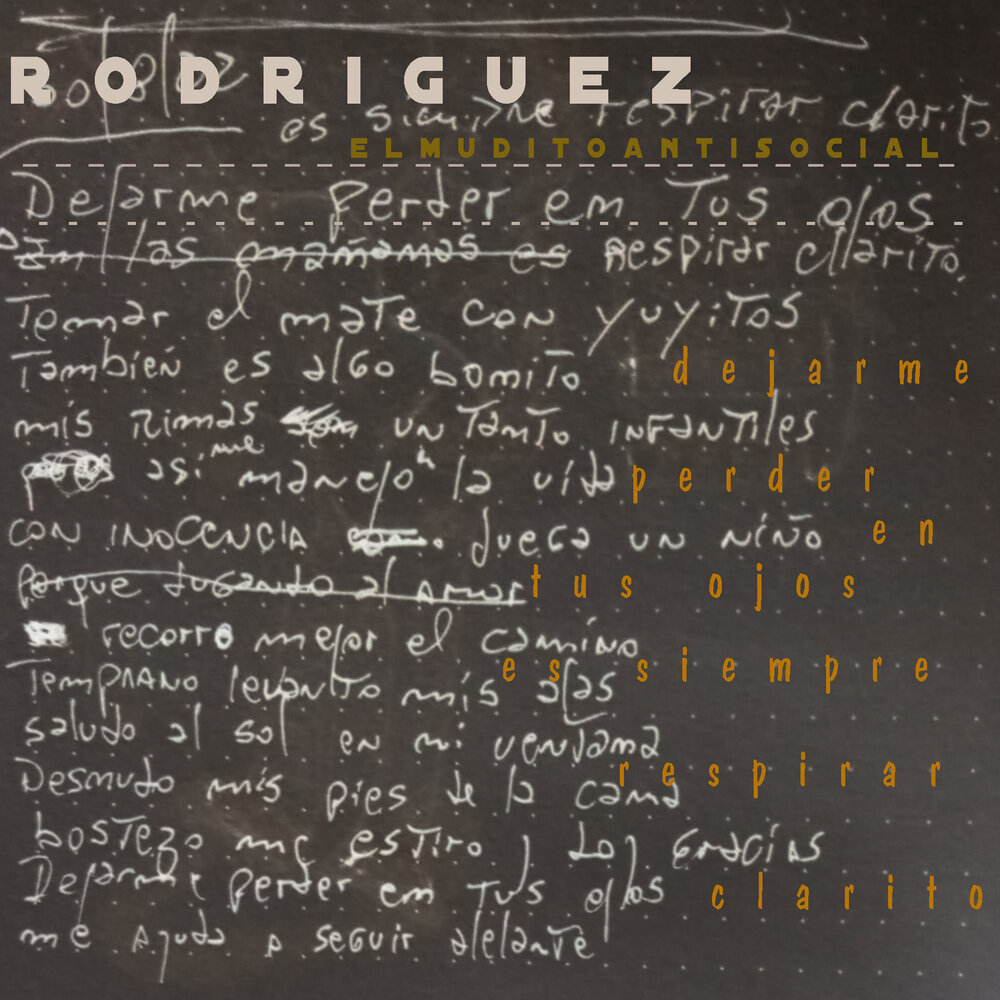 RODRIGUEZ
es siempre respirar clarito
ELMUDITOANTISOCIAL
Dejarme perder en Tus ojos
En las mañanas es Respirar clarito.
Tomar el mate con yuyitos
También es algo bonito
dejarme
mis Rimas son un Tanto INFANTiles
así me manejo la vida
perder
CON INOCENCIA juega un niño
en
porque jugando al amor
tus ojos
recorro mejor el camino
es siempre
Temprano levanto mis alas
saludo al sol en mi ventana
respirar
Desnudo mis pies de la cama
bostezo me estiro y doy Gracias
Dejarme perder en Tus ojos
clarito
me ayuda a seguir adelante